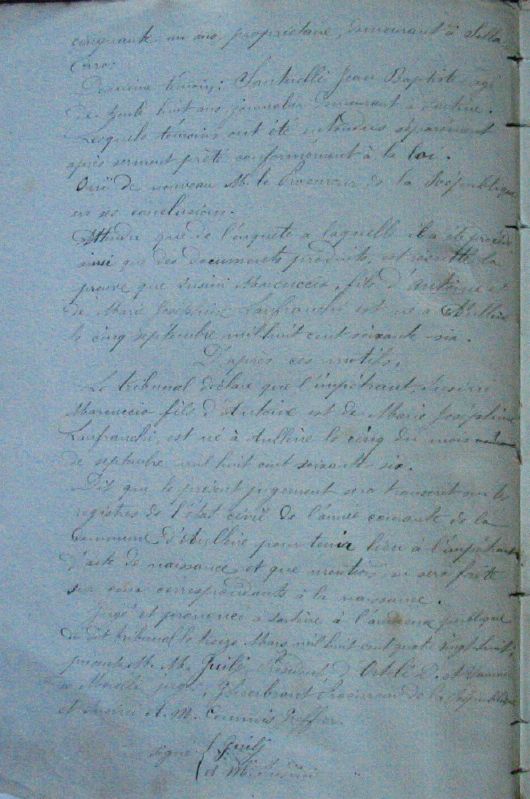 cinquante un ans, propriétaire, demeurant à Sella
Caro;
Deuxième témoin: Santucelli Jean Baptiste agé
de trente huit ans, journalier demeurant à Sartène.
Lesquels témoins ont été entendus séparément
après serment prêté conformément à la loi.
Ouï de nouveau M. le Procureur de la République
en ses conclusions.
Attendu que de l'enquête à laquelle il a été procédé
ainsi que des documents produits, est résultée la
preuve que Susini Marcuccio, fils d'Antoine et
de Marie Joséphine Lanfranchi est né à Aullène
le cinq septembre mil huit cent soixante six.
D'après ces motifs,
Le tribunal déclare que l'impétrant Susini
Marcuccio fils d'Antoine et de Marie Joséphine
Lanfranchi, est né à Aullène le cinq du mois
de septembre mil huit cent soixante six.
Dit que le présent jugement sera transcrit sur les
registres de l'état civil de l'année courante de la
commune d'Aullène pour tenir lieu à l'impétrant
d'acte de naissance et que mention en sera faite
correspondante à la naissance.
Jugé et prononcé à Sartène à l'audience publique
du dit tribunal le treize Mars mil huit cent quatre vingt huit,
présents M. M. Giulj Président,
juge, Procureur de la République
et Susini A. M. Commis Greffier.
signé J. Giulj
et M. Susini